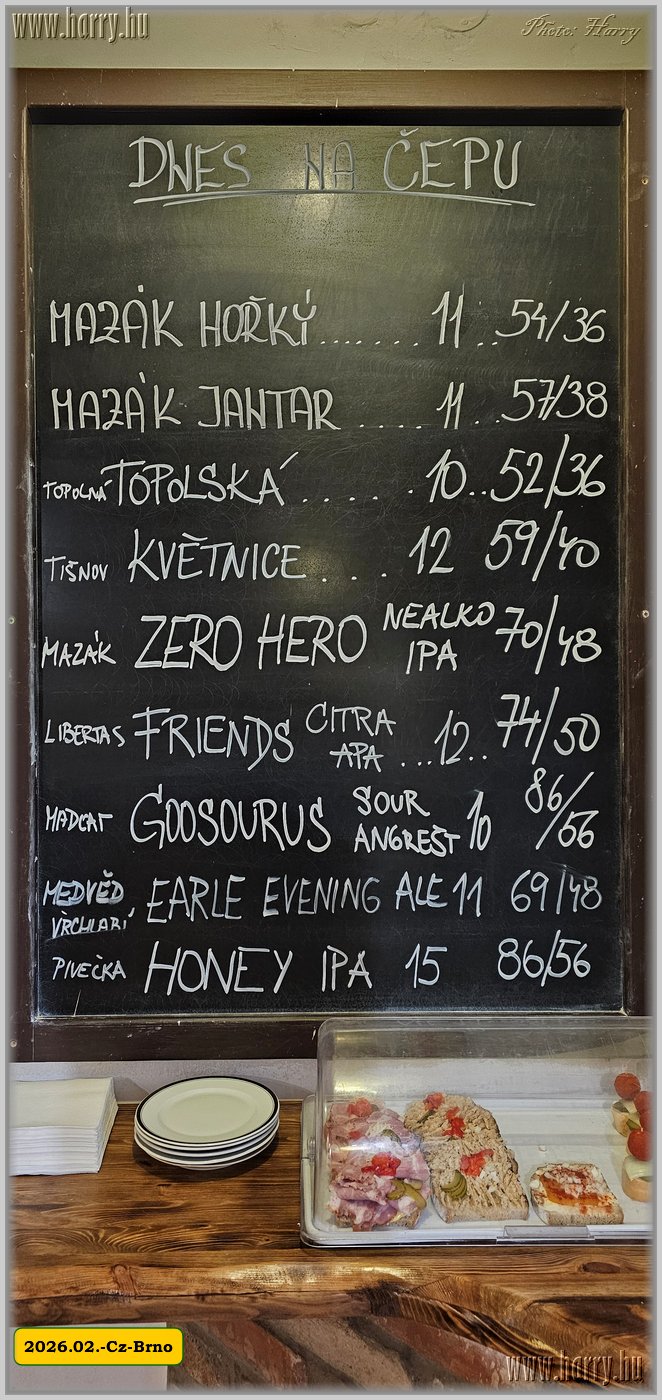 www.harry.hu
Photo: Harry
DNES NA ČEPU
MAZÁK HOŘKÝ....... 11 .. 54/36
MAZÁK JANTAR ..... 11 .. 57/38
TOPOLNÁ TOPOLSKÁ ...... 10..52/36
TIŠNOV KVĚTNICE .... 12 59/40
MAZÁK ZERO HERO NEALKO IPA 70/48
LIBERTAS FRIENDS CITRA APA ...12.. 74/50
MADCAT GOOSOURUS SOUR ANGREŠT 10 86/56
MEDVĚD VRCHLABÍ EARLE EVENING ALE 11 69/48
PIVEČKA HONEY IPA 15 86/56
2026.02.-Cz-Brno
www.harry.hu